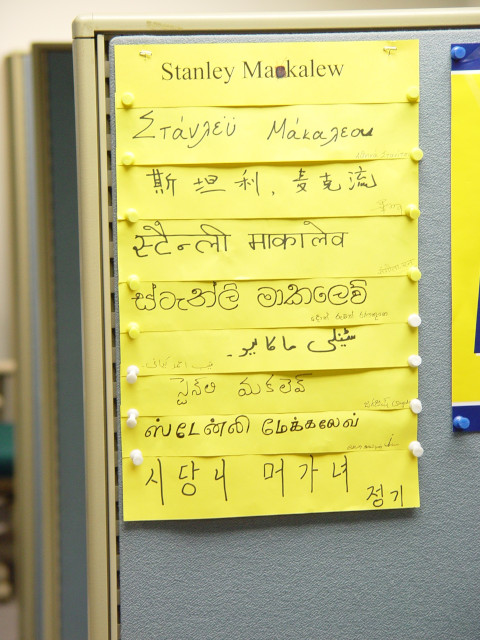 Stanley Makalew
Στάνλεϋ Μάκαλεου
斯坦利，麦克流
स्टैन्ली माकालेव
ස්ටැන්ලි මාකලෙව්
سٹینلی ماکالیو۔
સ્ટેનલી મકલેવ
ஸ்டேன்லி மேக்கலேவ்
시당니 머가녀
정기